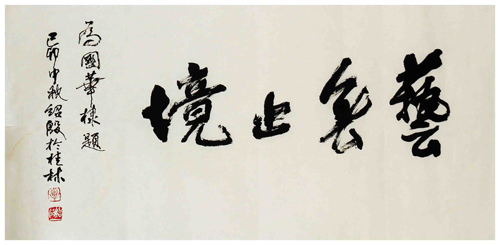 藝無止境
為國華棣題
己卯中秋紹殷於桂林